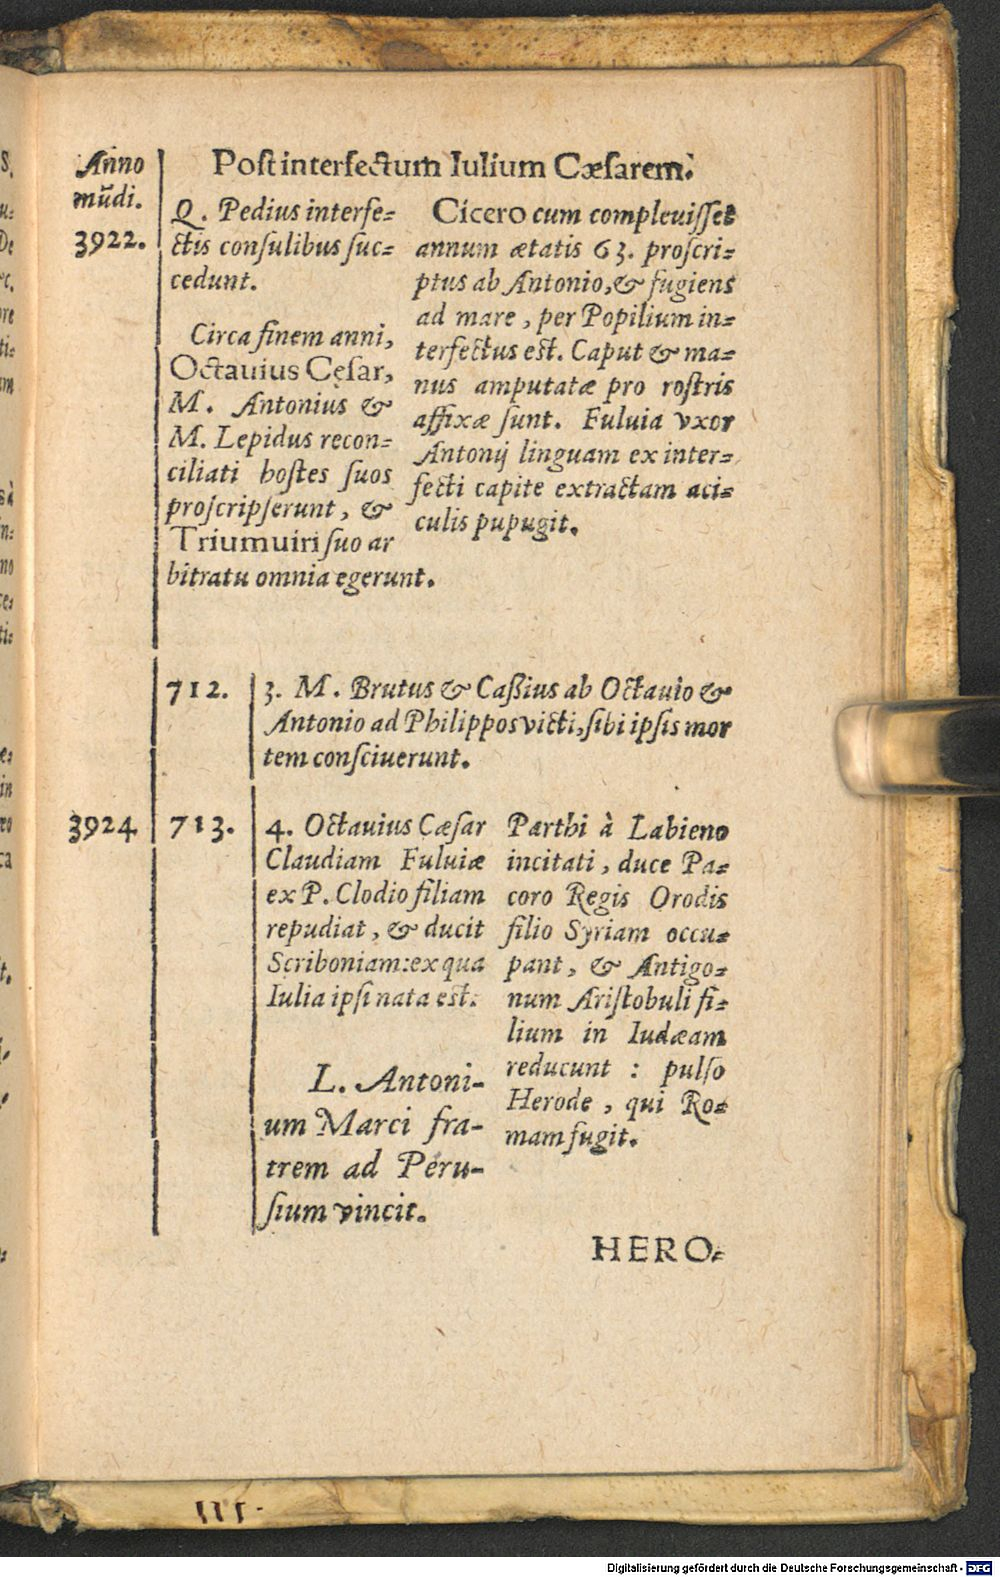 Anno
mūdi.
3922.
Post interfectum Iulium Cæsarem.
Q. Pedius interfe-
ctis consulibus suc-
cedunt.
Circa finem anni,
Octauius Cęsar,
M. Antonius &
M. Lepidus recon-
ciliati hostes suos
proscripserunt, &
Triumuiri suo ar
bitratu omnia egerunt.
Cicero cum compleuisset
annum ætatis 63. proscri-
ptus ab Antonio, & fugiens
ad mare, per Popilium in-
terfectus est. Caput & ma-
nus amputatæ pro rostris
affixæ sunt. Fuluia vxor
Antonij linguam ex inter-
fecti capite extractam aci-
culis pupugit.
712.
3. M. Brutus & Caßius ab Octauio &
Antonio ad Philippos victi, sibi ipsis mor
tem consciuerunt.
3924
713.
4. Octauius Cæsar
Claudiam Fuluiæ
ex P. Clodio filiam
repudiat, & ducit
Scriboniam: ex qua
Iulia ipsi nata est.
L. Antoni-
um Marci fra-
trem ad Peru-
sium vincit.
Parthi à Labieno
incitati, duce Pa-
coro Regis Orodis
filio Syriam occu-
pant, & Antigo-
num Aristobuli fi-
lium in Iudæam
reducunt : pulso
Herode, qui Ro-
mam fugit.
HERO-
Digitalisierung gefördert durch die Deutsche Forschungsgemeinschaft - DFG